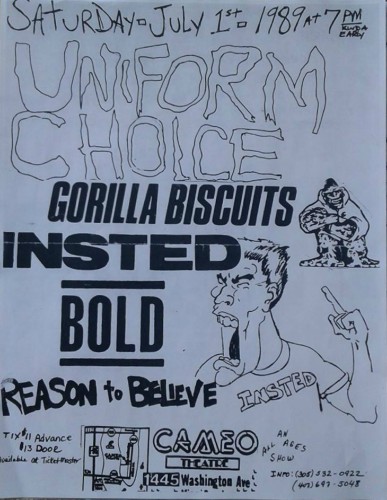 SATURDAY - JULY 1st - 1989 AT 7 PM
KINDA
EARLY
UNIFORM
CHOICE
GORILLA BISCUITS
INSTED
BOLD
REASON to BELIEVE
INSTED
TIX $11 Advance
$13 DOOR
Available at Ticketmaster
CAMEO
THEATRE
1445 Washington Ave
AN
ALL AGES
SHOW
INFO: (305) 532-0922
(407) 697-5048